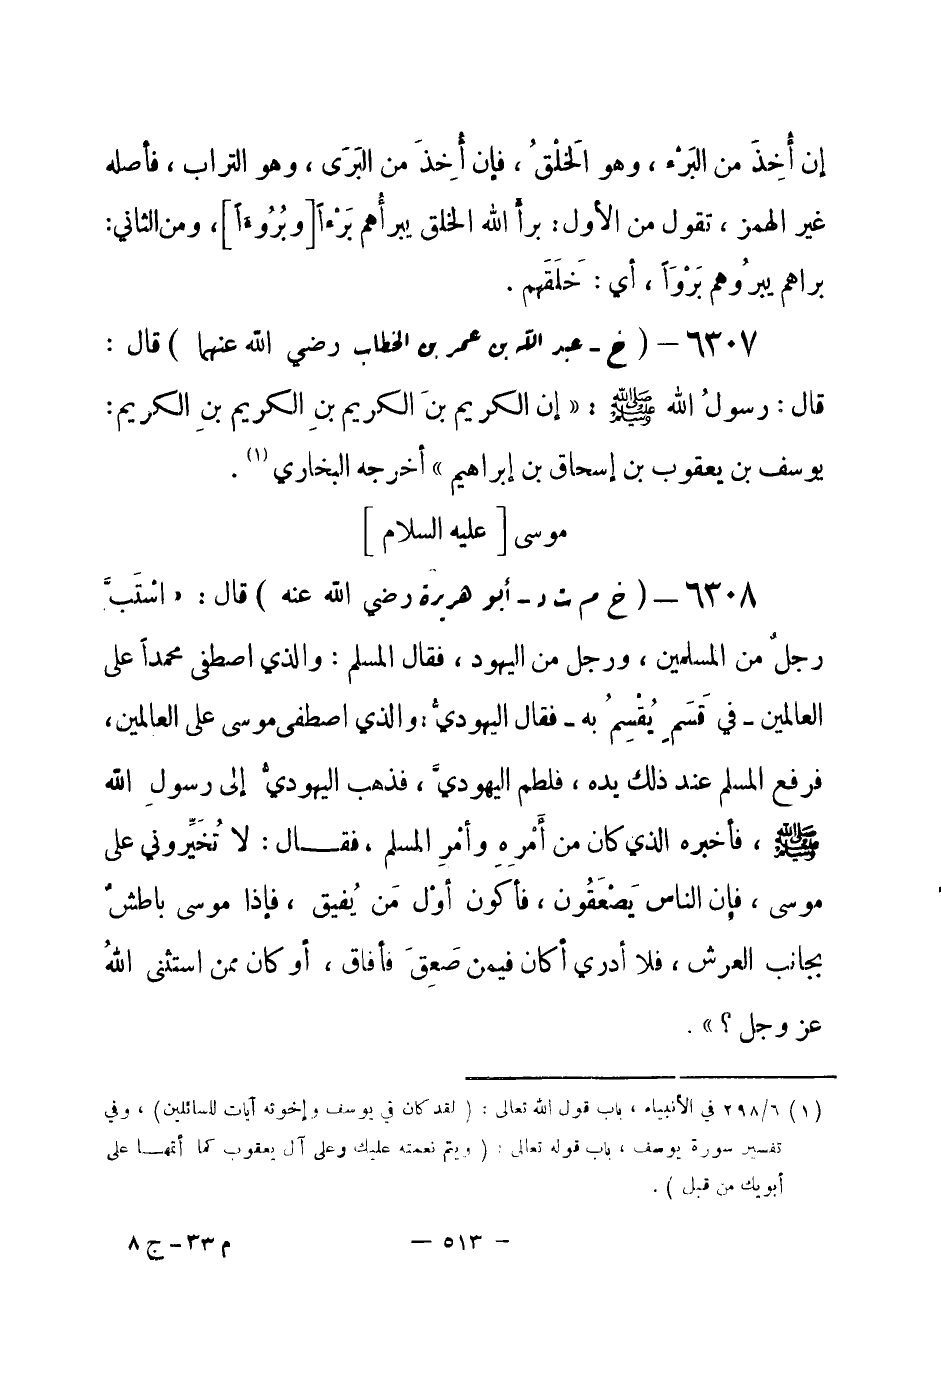 إن أُخِذَ من البَرْء ، وهو الَخلْقُ ، فإن أُخِذَ من البَرَى ، وهو التراب ، فأصله
غير الهمز ، تقول من الأول: برأ الله الخلق يبرأُهم بَرْءاً [وبُرُوءاً] ، ومن الثاني:
براهم يبرُوهم بَرْوَاً ، أي : خَلَقَهم .
٦٣٠٧ – ( خ - عبد الله بن عمر بن الخطاب رضي الله عنهما ) قال :
قال : رسولُ الله ﷺ : « إن الكريم بنَ الكريم بنِ الكريم بنِ الكريم:
يوسف بن يعقوب بن إسحاق بن إبراهيم » أخرجه البخاري (١) .
موسى [ عليه السلام ]
٦٣٠٨ – ( خ م ت د - أبو هريرة رضي الله عنه ) قال : « اسْتَبَّ
رجلٌ من المسلمين ، ورجل من اليهود ، فقال المسلم : والذي اصطفى محمداً على
العالمين - في قَسَمٍ يُقْسِمُ به - فقال اليهوديُّ : والذي اصطفى موسى على العالمين ،
فرفع المسلم عند ذلك يده ، فلطم اليهوديَّ ، فذهب اليهوديُّ إلى رسولِ الله
ﷺ ، فأخبره الذي كان من أَمْرِهِ وأمْرِ المسلم ، فقــال : لا تُخَيِّروني على
موسى ، فإن الناس يَصْعَقُون ، فأكون أوْل مَن يُفيق ، فإذا موسى باطشٌ
بجانب العرش ، فلا أدري أكان فيمن صَعِقَ فأفاق ، أو كان ممن استثنى اللهُ
عز وجل ؟ » .
(١) ٢٩٨/٦ في الأنبياء ، باب قول الله تعالى : ( لقد كان في يوسف وإخوته آيات للسائلين) ، وفي
تفسير سورة يوسف ، باب قوله تعالى : ( ويتم نعمته عليك وعلى آل يعقوب كما أتمهـا على
أبويك من قبل ) .
– ٥١٣ – م ٣٣ - ج ٨